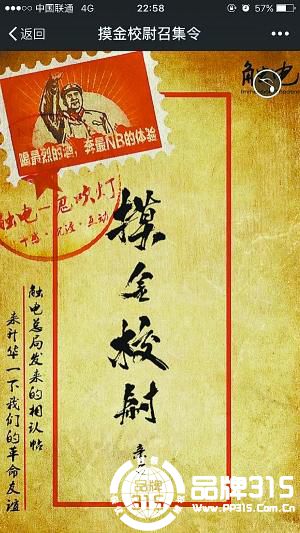 中国联通 4G
22:58
57%
返回
摸金校尉召集令
触电
喝最烈的酒，奔最NB的体验
触电—鬼吹灯
十惑·沉浸·互动
摸金校尉
亲
触电总局发来的相认帖
来升华一下我们的革命友谊
品牌315
Www.PP315.Com.Cn